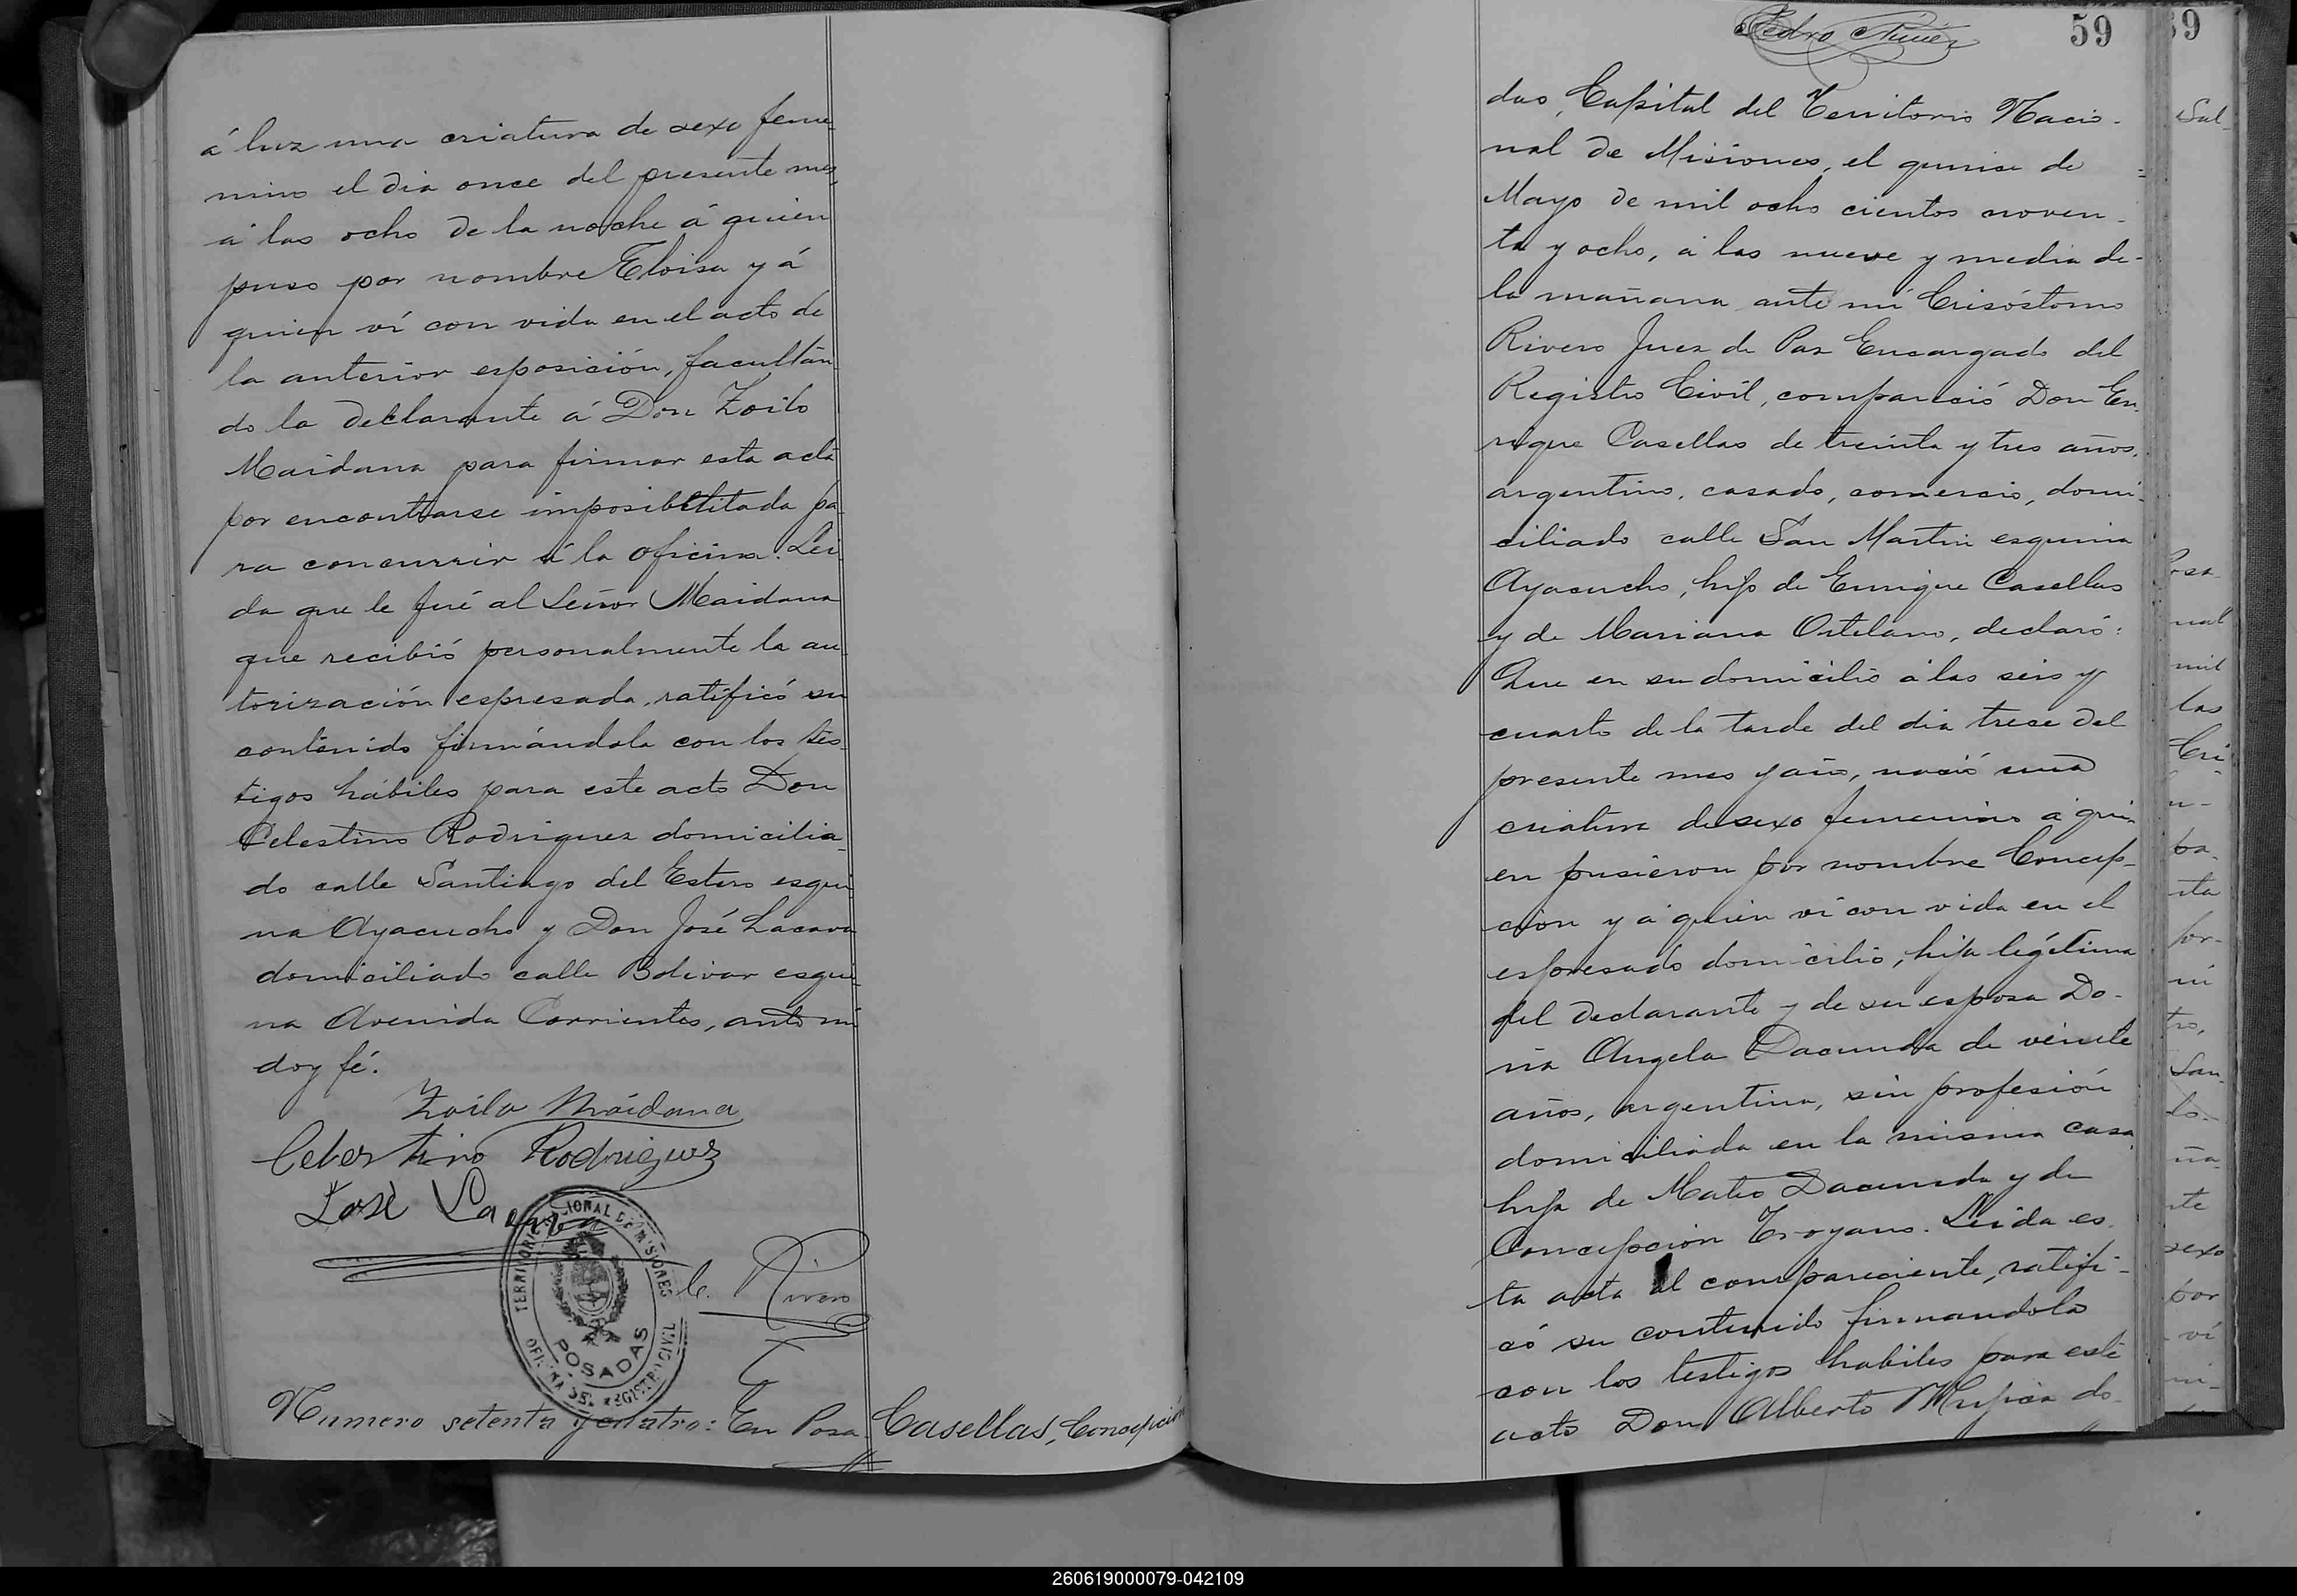 á luz una criatura de sexo feme-
nino el dia once del presente mes,
á las ocho de la noche á quien
puso por nombre Eloisa y á
quien ví con vida en el acto de
la anterior esposición, facultan
do la declarante á Don Zoilo
Maidana para firmar esta acta
por encontrarse imposibilitada pa
ra concurrir á la oficina. Lei
da que le fué al Señor Maidana
que recibió personalmente la au
torización espresada, ratificó su
contenido firmándola con los tes-
tigos hábiles para este acto Don
Celestino Rodriguez domicilia-
do calle Santiago del Estero esqui-
na Ayacucho y Don José Lacava
domiciliado calle Bolivar esqui-
na Avenida Corrientes, ante mí
doy fé.
Zoilo Maidana
Celestino Rodriguez
José Lacava
TERRITORIO NACIONAL DE MISIONES
POSADAS
OFICINA DEL REGISTRO CIVIL
C. Rivero
Numero setenta y cuatro: En Posa-
Casellas, Concepción
Pedro Núñez
59
das, Capital del Territorio Nacio-
nal de Misiones, el quince de
Mayo de mil ocho cientos noven-
ta y ocho, á las nueve y media de-
la mañana ante mí Crisóstomo
Rivero Juez de Paz Encargado del
Registro Civil, compareció Don En-
rique Casellas de treinta y tres años,
argentino, casado, comercio, domi-
ciliado calle San Martin esquina
Ayacucho, hijo de Enrique Casellas
y de Mariana Ortelano, declaró:
Que en su domicilio á las seis y
cuarto de la tarde del dia trece del
presente mes y año, nació una
criatura de sexo femenino á qui-
en pusieron por nombre Concep-
ción y á quien ví con vida en el
espresado domicilio, hija legítima
del declarante y de su esposa Do-
ña Angela Dacunda de veinte
años, argentina, sin profesión
domiciliada en la misma casa,
hija de Mateo Dacunda y de
Concepción Troyano. Leida es-
ta acta al compareciente, ratifi-
có su contenido firmandola
con los testigos habiles para este
acto Don Alberto Mujica do-
39
Sal-
Posa-
nal
mil
las
Cri-
pa-
nta
por-
mí
tro,
San-
lo-
ña-
nte
sexo
por
ví
260619000079-042109